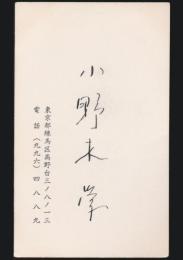 小野木学
東京都練馬区高野台三ノ八ノ一三
電話(九九六)四八八九